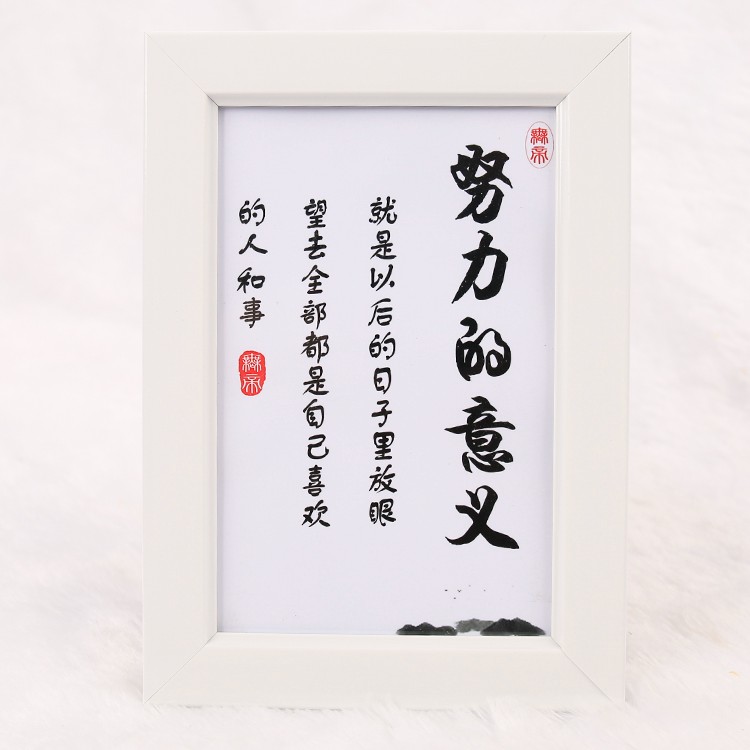 努力的意义
就是以后的日子里放眼
望去全部都是自己喜欢
的人和事